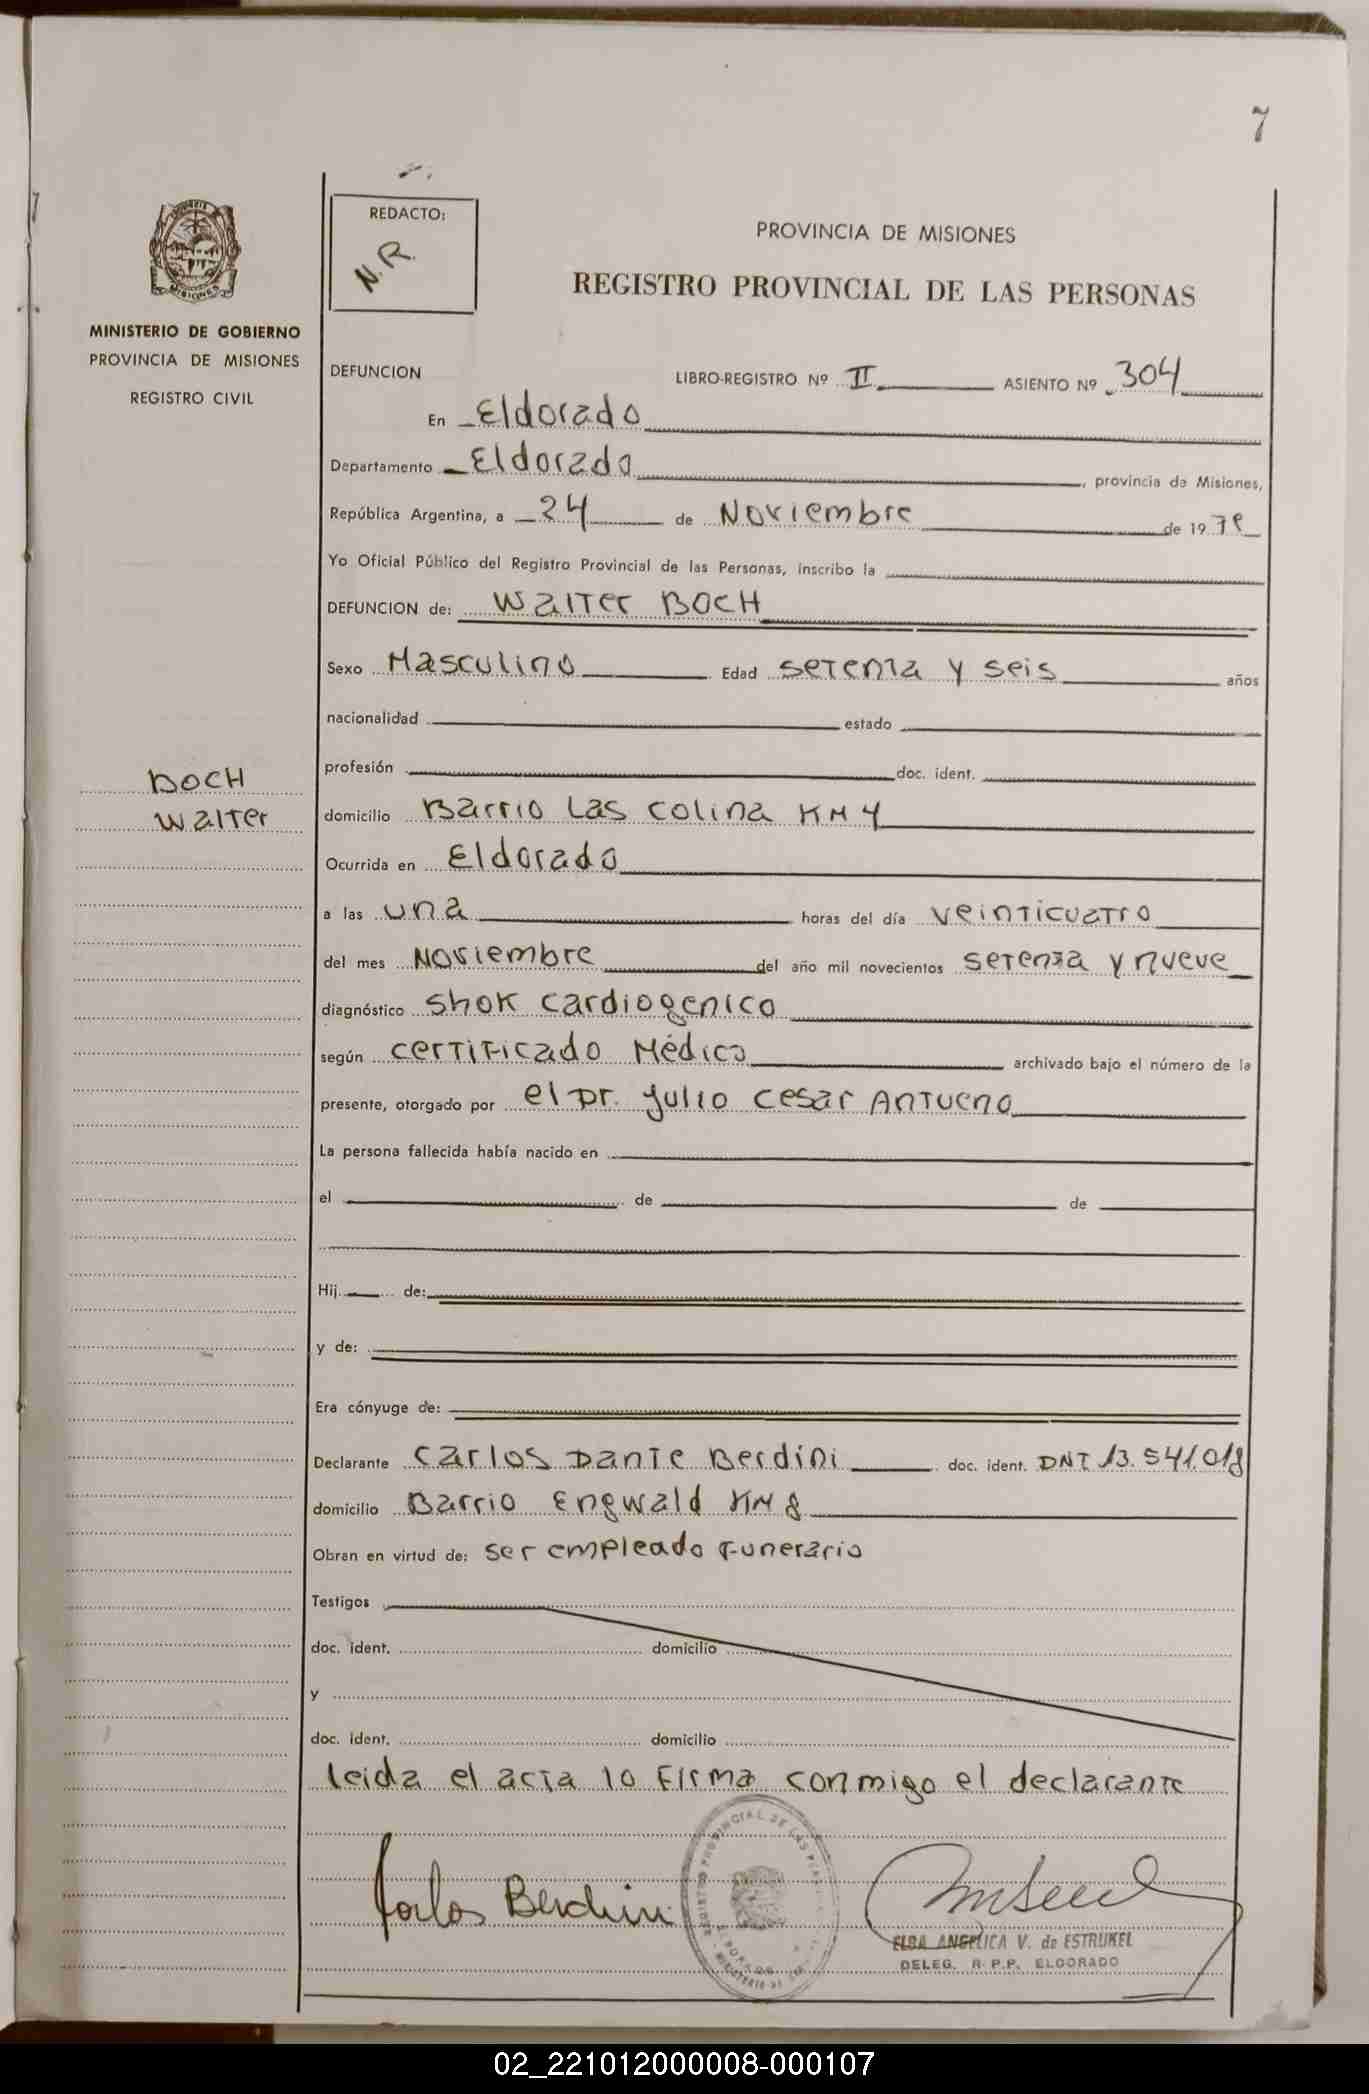 7
REDACTO:
N.R.
PROVINCIA DE MISIONES
REGISTRO PROVINCIAL DE LAS PERSONAS
MISIONES
MINISTERIO DE GOBIERNO
PROVINCIA DE MISIONES
REGISTRO CIVIL
DEFUNCION LIBRO-REGISTRO Nº II ASIENTO Nº 304
En Eldorado
Departamento Eldorado, provincia de Misiones,
República Argentina, a 24 de Noviembre de 1979
Yo Oficial Público del Registro Provincial de las Personas, inscribo la
DEFUNCION de: Walter BOCH
Sexo Masculino Edad setenta y seis años
nacionalidad estado
profesión doc. ident.
BOCH
Walter
domicilio Barrio Las Colina KM 4
Ocurrida en Eldorado
a las una horas del día veinticuatro
del mes Noviembre del año mil novecientos setenta y nueve
diagnóstico shok cardiogenico
según certificado Médico archivado bajo el número de la
presente, otorgado por el Dr. Julio Cesar Antueno
La persona fallecida había nacido en
el de de
Hij de:
y de:
Era cónyuge de:
Declarante Carlos Dante Berdini doc. ident. DNI 13.541.018
domicilio Barrio Engwald KM 8
Obran en virtud de: ser empleado funerario
Testigos
doc. ident. domicilio
y
doc. ident. domicilio
leida el acta lo firma conmigo el declarante
Carlos Berdini
ELBA ANGELICA V. de ESTRUKEL
DELEG. R.P.P. ELDORADO
02_221012000008-000107